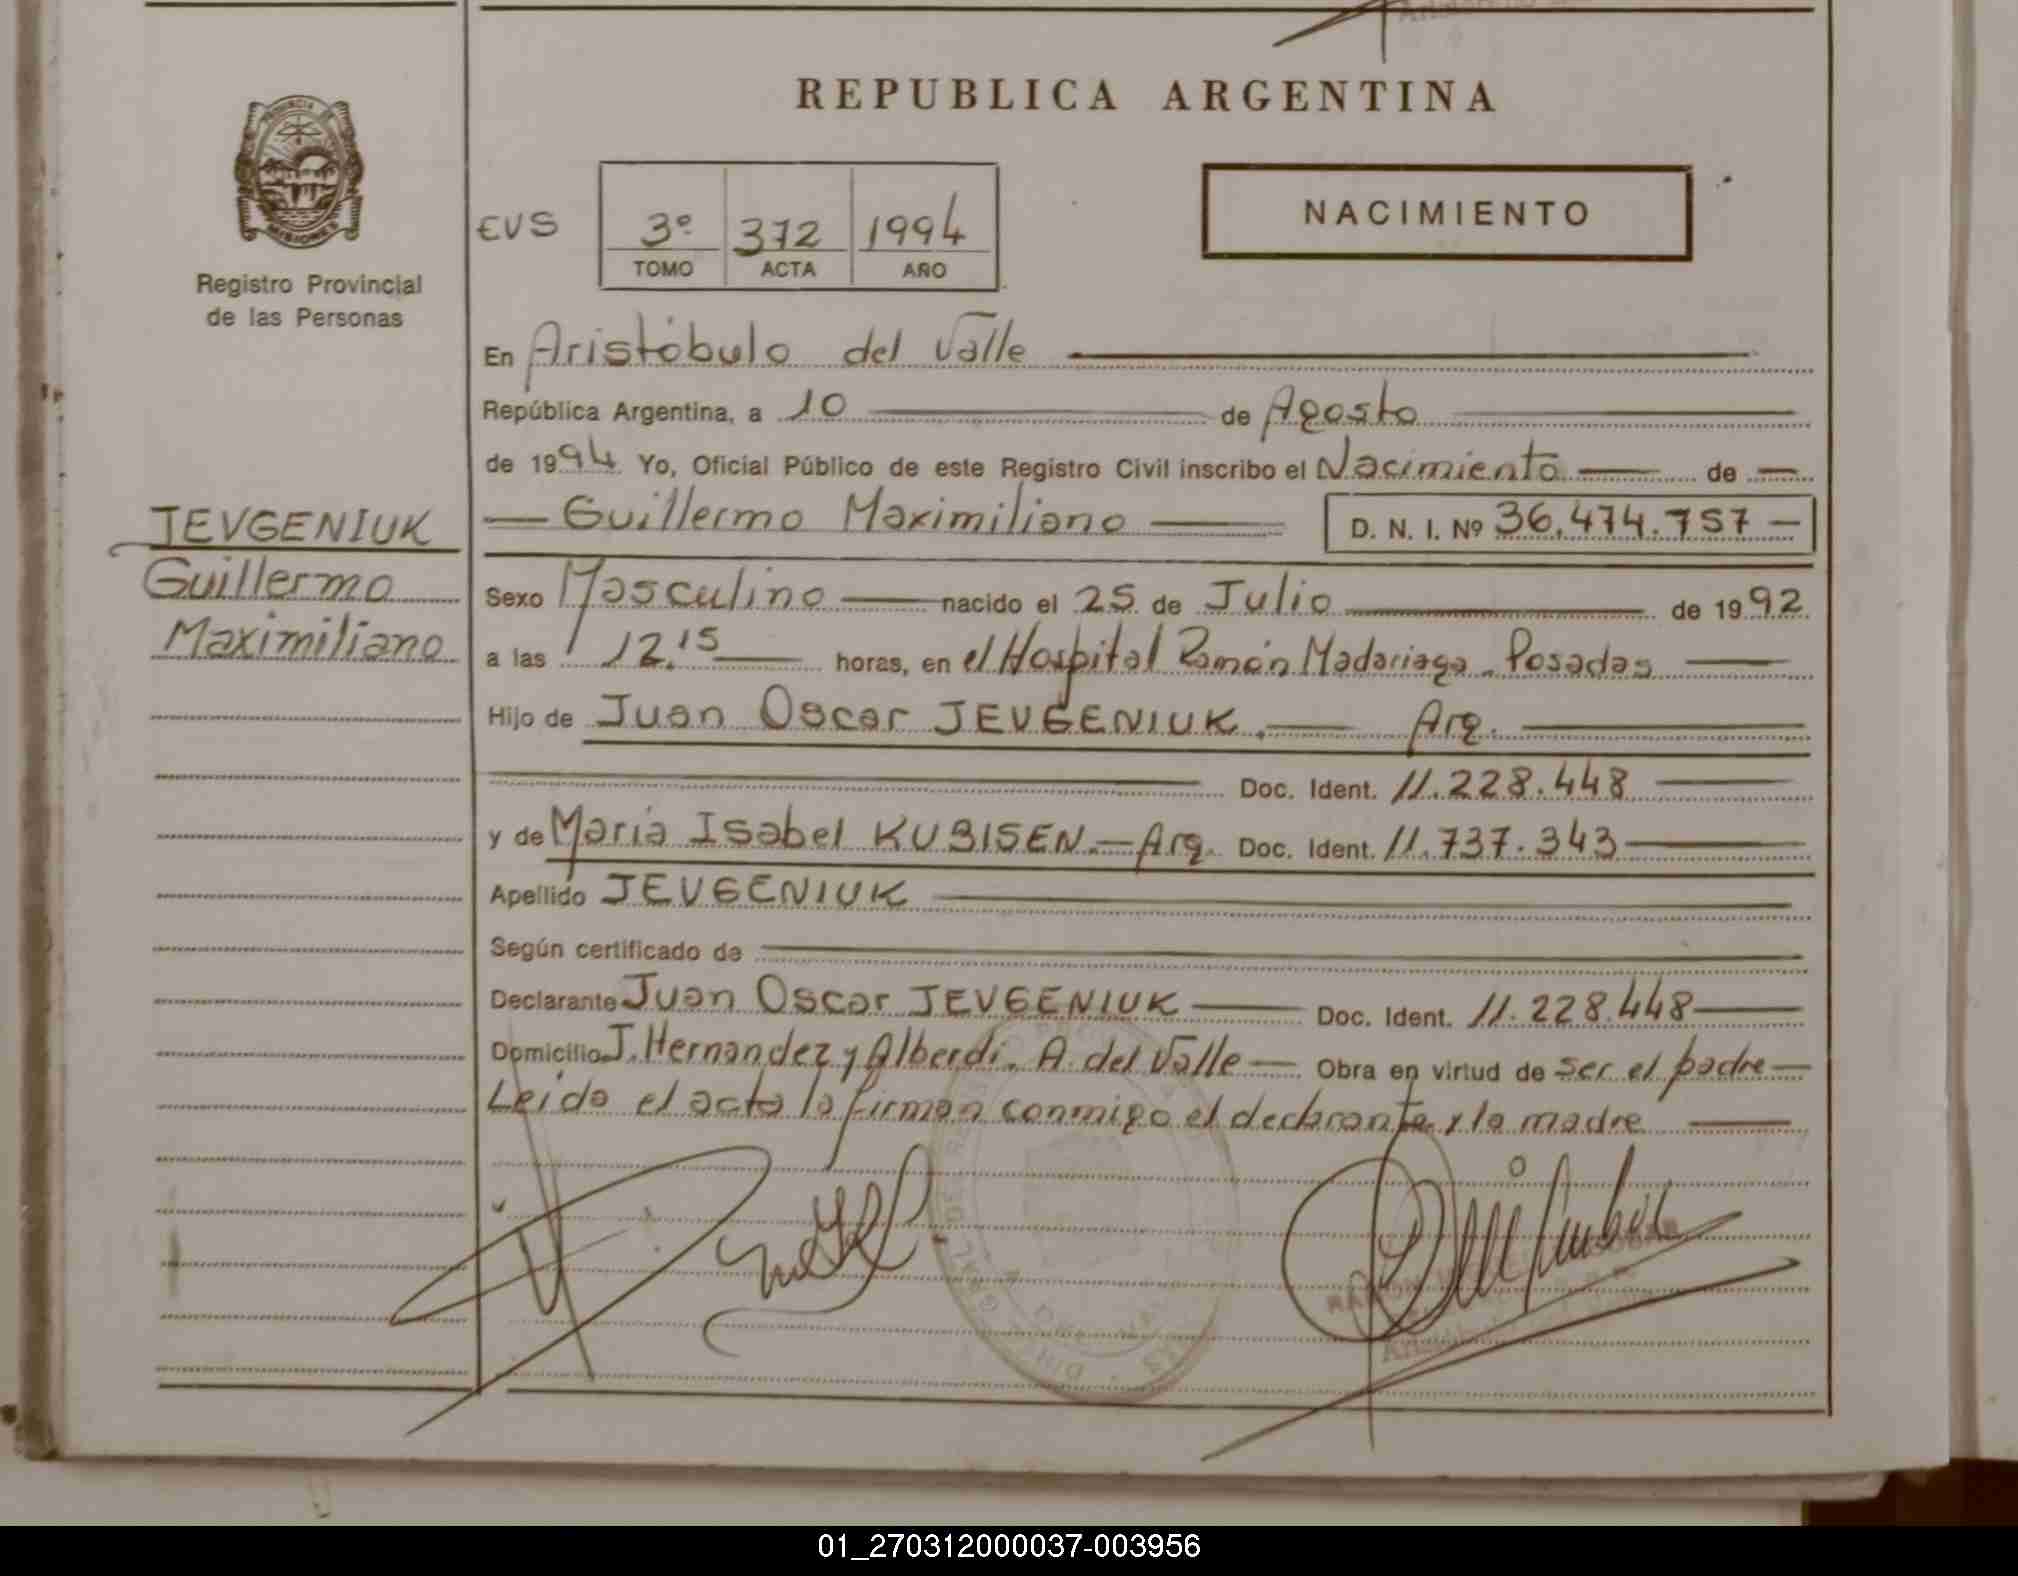 REPUBLICA ARGENTINA
PROVINCIA DE
MISIONES
Registro Provincial
de las Personas
EVS
3º 372 1994
TOMO ACTA AÑO
NACIMIENTO
En Aristóbulo del Valle
República Argentina, a 10 de Agosto
de 1994 Yo, Oficial Público de este Registro Civil inscribo el Nacimiento de
Guillermo Maximiliano D. N. I. Nº 36.474.757
JEVGENIUK
Guillermo
Maximiliano
Sexo Masculino nacido el 25 de Julio de 1992
a las 12.15 horas, en el Hospital Ramón Madariaga - Posadas
Hijo de Juan Oscar JEVGENIUK. Arg.
Doc. Ident. 11.228.448
y de María Isabel KUBISEN.- Arg. Doc. Ident. 11.737.343
Apellido JEVGENIUK
Según certificado de
Declarante Juan Oscar JEVGENIUK Doc. Ident. 11.228.448
Domicilio J. Hernandez y Alberdi. A. del Valle Obra en virtud de ser el padre
Leida el acta la firman conmigo el declarante y la madre
01_270312000037-003956